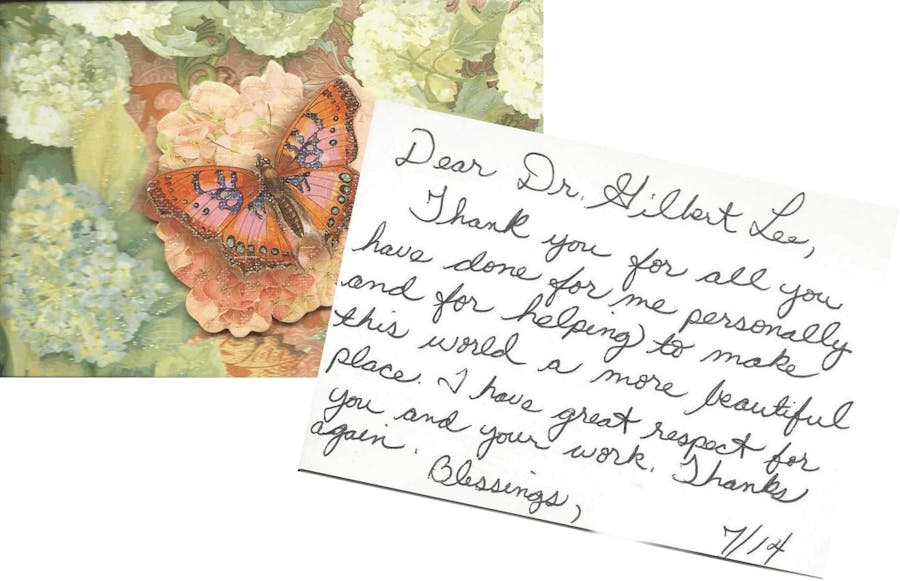 Dear Dr. Gilbert Lee,
Thank you for all you
have done for me personally
and for helping to make
this world a more beautiful
place. I have great respect for
you and your work. Thanks
again.
Blessings,
7/14